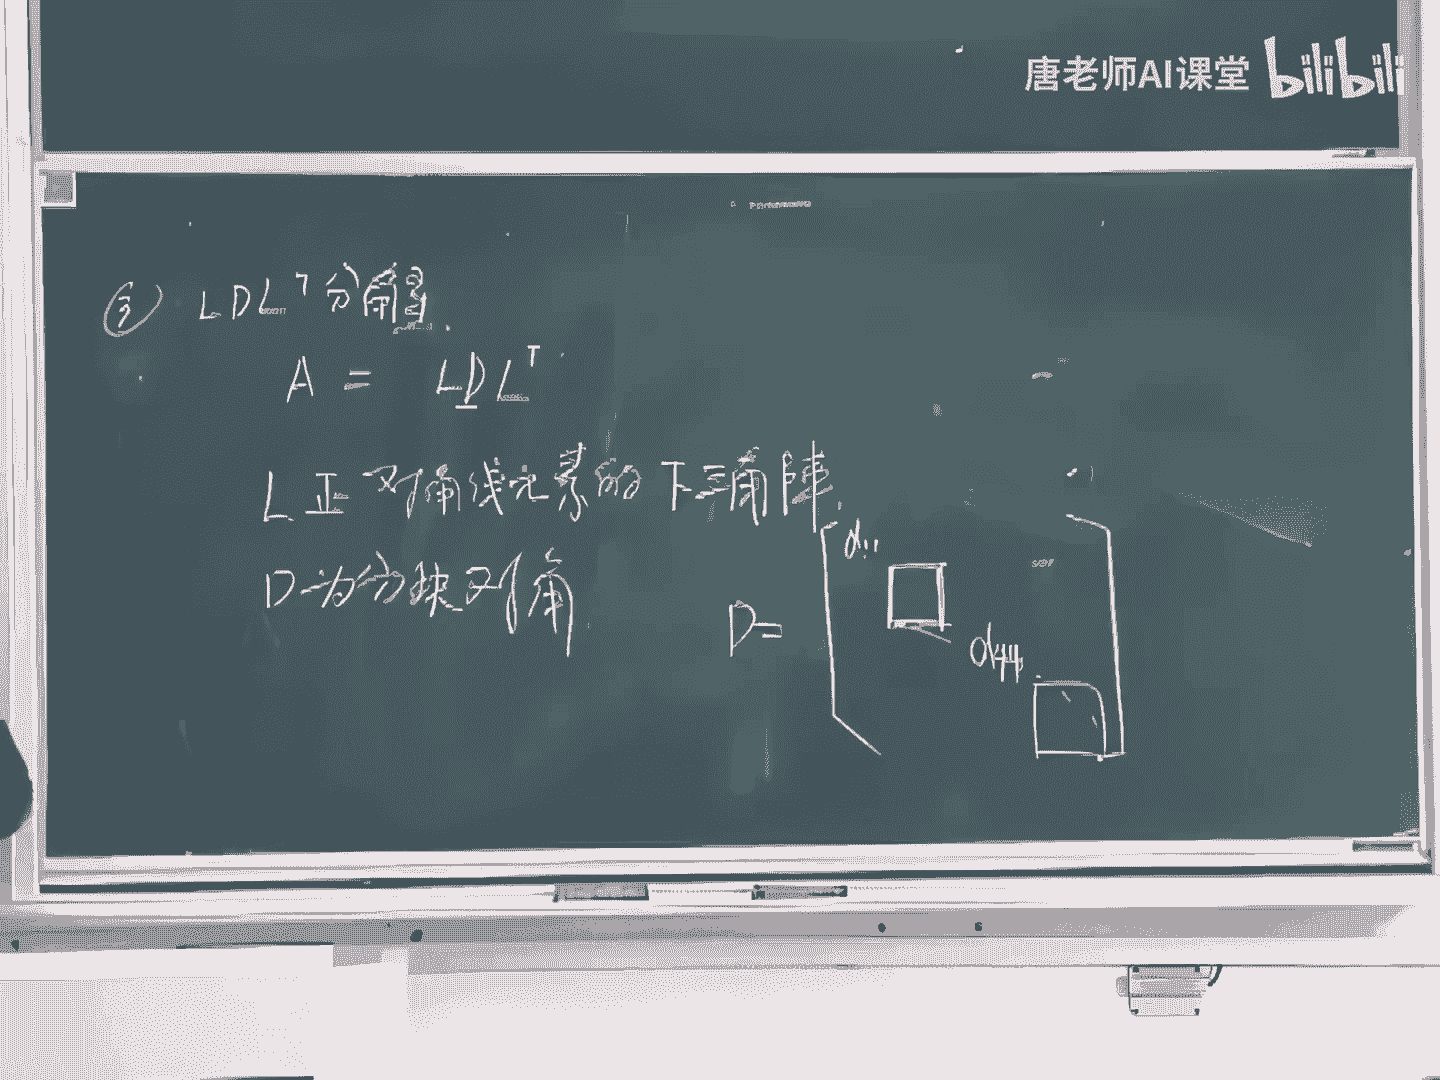 唐老师AI课堂 bilibili
③ LDLᵀ分解
A = LDLᵀ
L 正对角线元素的下三角阵.
D为分块对角
D= d₁₁
d₄₄